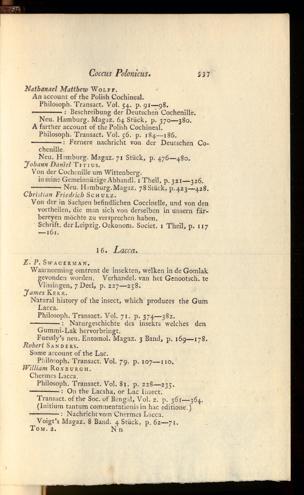 Coccus Polonicus. 537
Nathanael Matthew WOLFF.
An account of the Polish Cochineal.
Philosoph. Transact. Vol. 54. p. 91—98.
———: Beschreibung der Deutschen Cochenille.
Neu. Hamburg. Magaz. 64 Stück, p. 370—380.
A further account of the Polish Cochineal.
Philosoph. Transact. Vol. 56. p. 184—186.
———: Fernere nachricht von der Deutschen Co-
chenille.
Neu. Hamburg. Magaz. 71 Stück, p. 476—480.
Johann Daniel TITIUS.
Von der Cochenille um Wittenberg.
in seine Gemeinnüzige Abhandl. 1 Theil, p. 321—326.
——— Neu. Hamburg. Magaz. 78 Stück, p. 423—428.
Christian Friedrich SCHULZ.
Von der in Sachsen befindlichen Coccinelle, und von den
vortheilen, die man sich von derselben in unsern fär-
bereyen möchte zu versprechen haben.
Schrift. der Leipzig. Oekonom. Societ. 1 Theil, p. 117
—161.
16. Lacca.
E. P. SWAGERMAN.
Waarneeming omtrent de insekten, welken in de Gomlak
gevonden worden. Verhandel. van het Genootsch. te
Vlissingen, 7 Deel, p. 227—238.
James KERR.
Natural history of the insect, which produces the Gum
Lacca.
Philosoph. Transact. Vol. 71. p. 374—382.
———: Naturgeschichte des insekts welches den
Gummi-Lak hervorbringt.
Fuessly's neu. Entomol. Magaz. 3 Band, p. 169—178.
Robert SANDERS.
Some account of the Lac.
Philosoph. Transact. Vol. 79. p. 107—110.
William ROXBURGH.
Chermes Lacca.
Philosoph. Transact. Vol. 81. p. 228—235.
———: On the Lacsha, or Lac Insect.
Transact. of the Soc. of Bengal, Vol. 2. p. 361—364.
(Initium tantum commentationis in hac editione.)
———: Nachricht vom Chermes Lacca.
Voigt's Magaz. 8 Band. 4 Stück, p. 62—71.
TOM. 2. N n